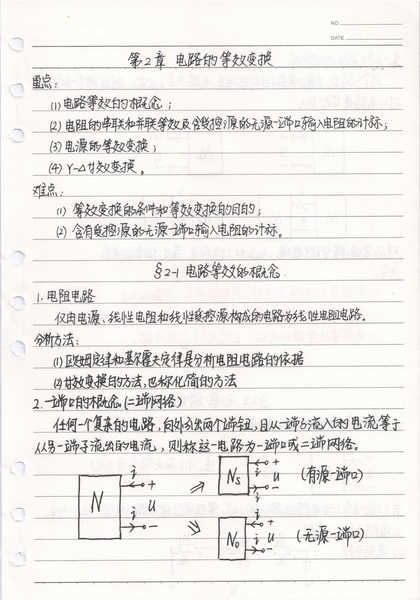 NO.
DATE
第2章 电路的等效变换
重点:
(1) 电路等效的概念;
(2) 电阻的串联和并联等效及含受控源的无源一端口输入电阻的计标;
(3) 电源的等效变换;
(4) Y-Δ等效变换。
难点:
(1) 等效变换的条件和等效变换的目的;
(2) 含有受控源的无源一端口输入电阻的计标。
§2-1 电路等效的概念.
1. 电阻电路
仅由电源、线性电阻和线性受控源构成的电路为线性电阻电路。
分析方法:
(1) 欧姆定律和基尔霍夫定律是分析电阻电路的依据
(2) 等效变换的方法,也称化简的方法
2. 一端口的概念(二端网络)
任何一个复杂的电路,向外引出两个端钮,且从一端子流入的电流等于
从另一端子流出的电流,则称这一电路为一端口或二端网络。
N i + U i - ⇒ Ns i + U i - (有源一端口)
⇒ No i + U i - (无源一端口)